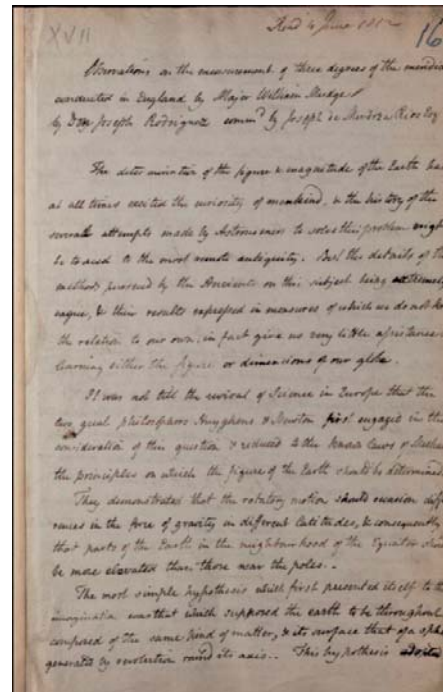 XVII
Read 4 June 1812
16
Observations on the measurement of three degrees of the meridian
conducted in England by Major William Mudge
by Don Joseph Rodriguez commd by Joseph de Mendoza Rios Esq
The determination of the figure & magnitude of the Earth has
at all times excited the curiosity of mankind, & the history of the
several attempts made by Astronomers to solve this problem might
be traced to the most remote antiquity. But the details of the
methods pursued by the Ancients on this subject being extremely
vague, & their results expressed in measures of which we do not
the relation to our own, in fact give us very little assistance
learning either the figure or dimensions of our globe.
It was not till the revival of Science in Europe that the
two great philosophers Huyghens & Newton first engaged in the
consideration of this question & reduced to the known laws of
the principles on which the figure of the Earth should be determined
They demonstrated that the rotatory motion should occasion diff
rences in the force of gravity in different latitudes, & consequently
that parts of the Earth in the neighbourhood of the Equator
be more elevated than those near the poles.
The most simple hypothesis which first presented itself to the
imagination was that which supposed the earth to be throughout
composed of the same kind of matter, & its surface that of a
generated by revolution round its axis. This hypothesis